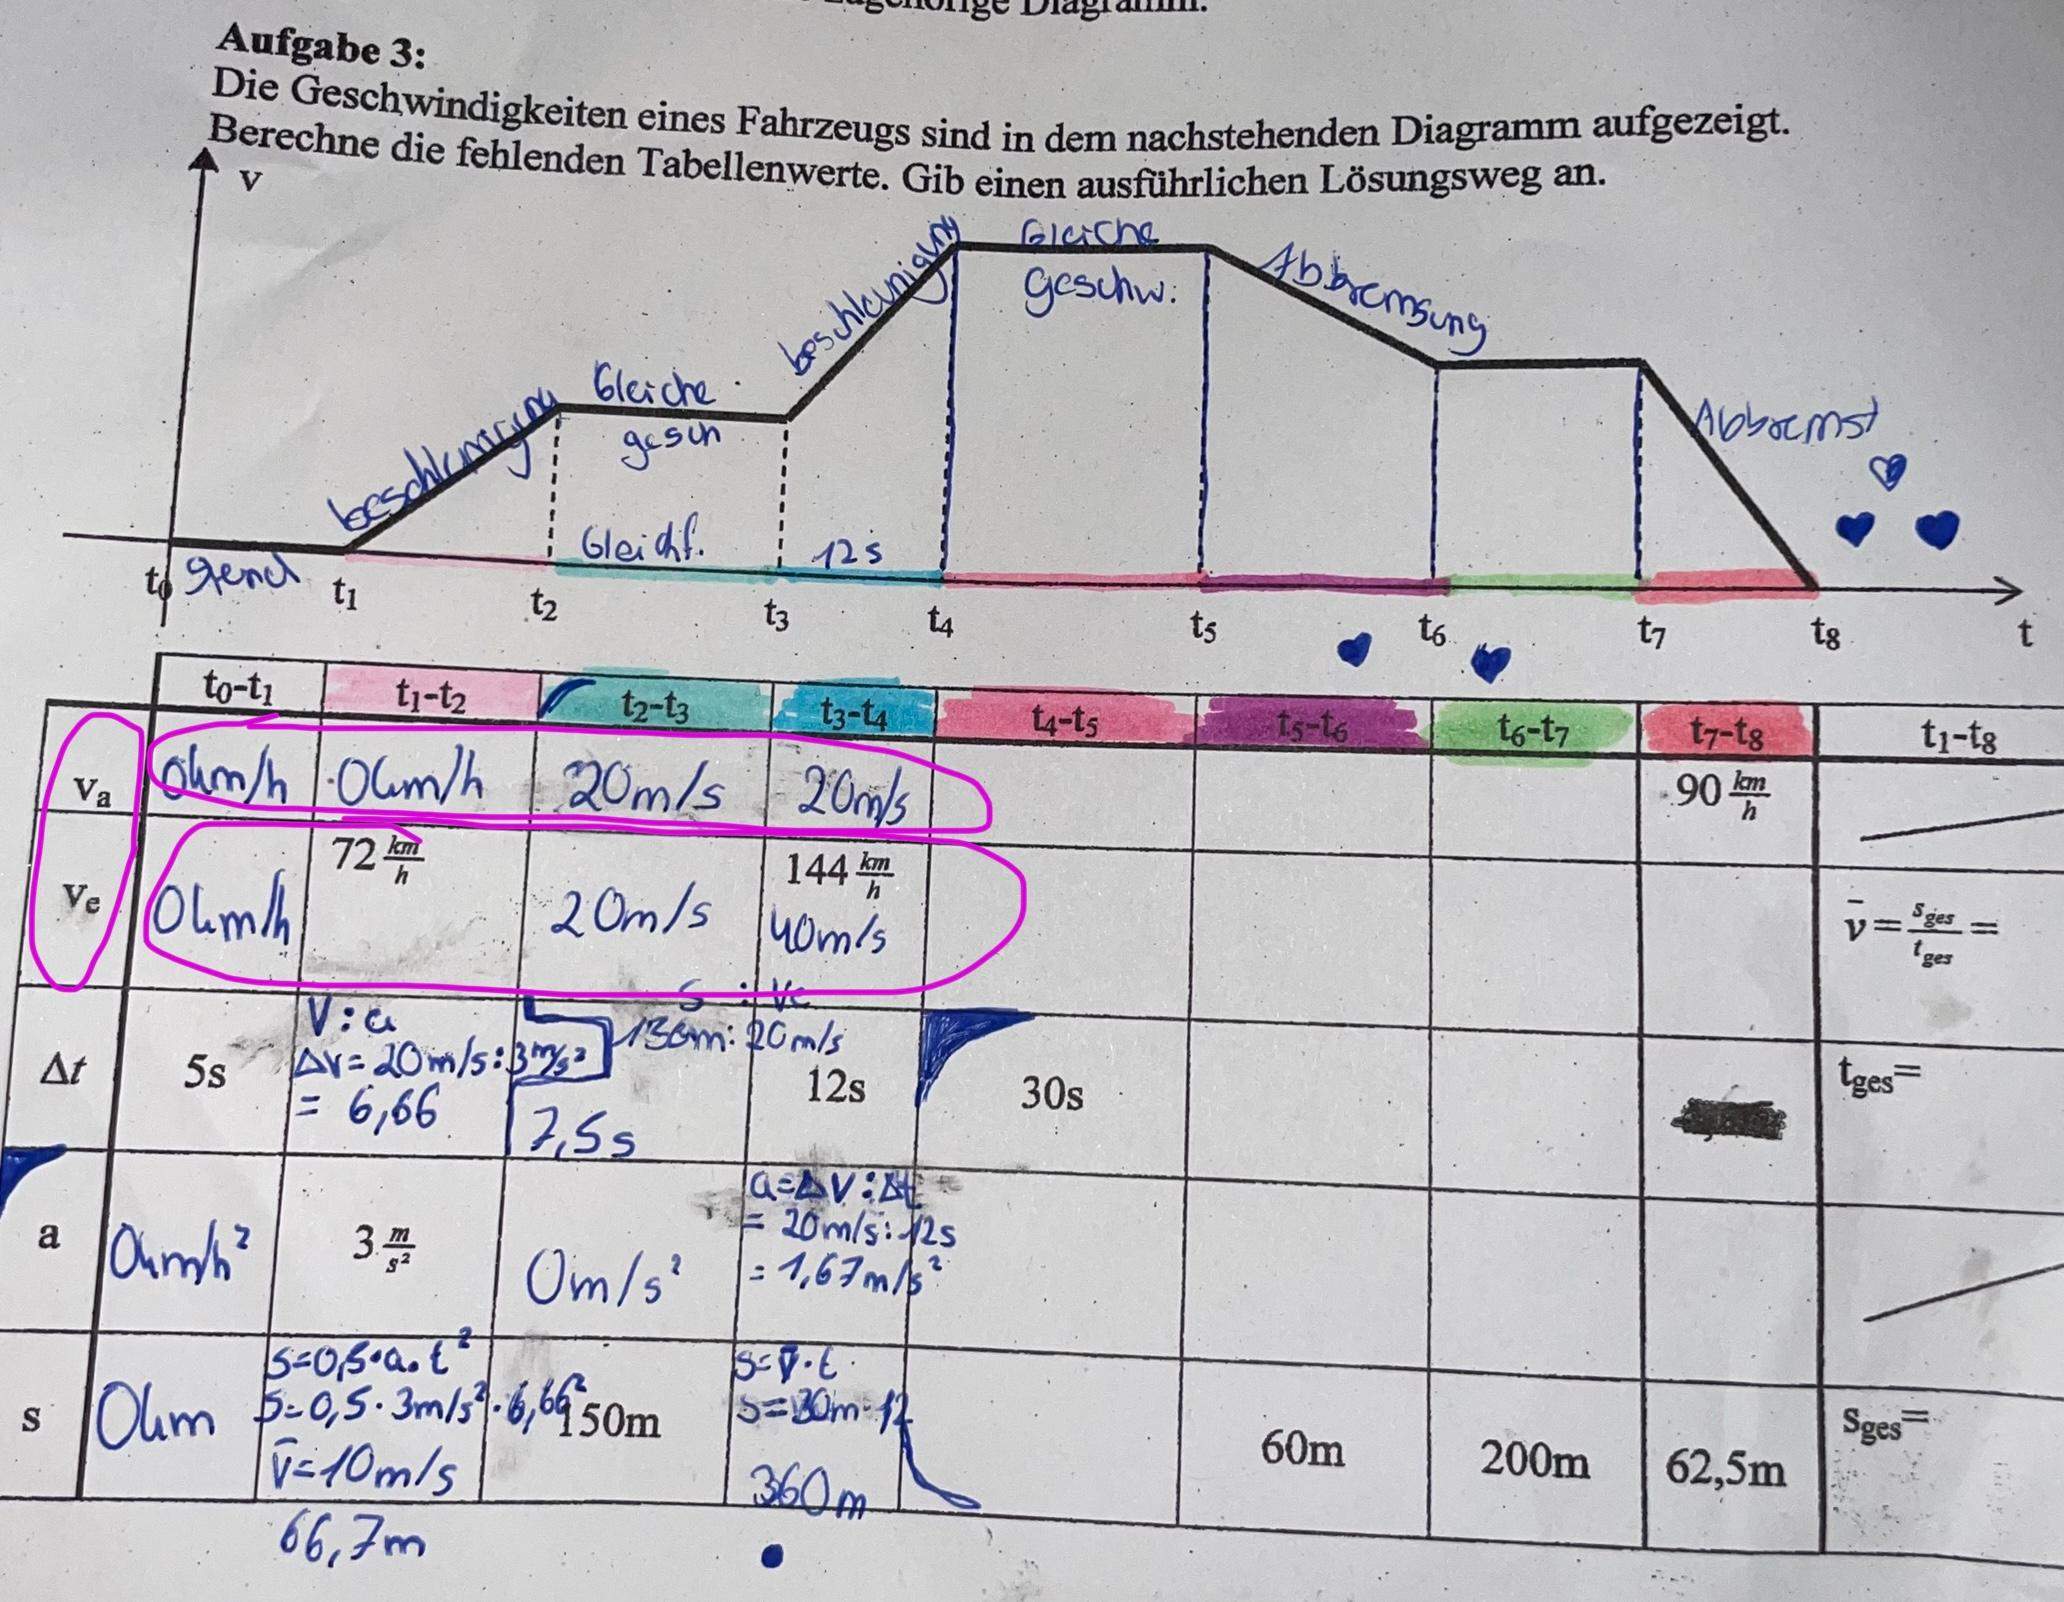 zugehörige Diagramm.
Aufgabe 3:
Die Geschwindigkeiten eines Fahrzeugs sind in dem nachstehenden Diagramm aufgezeigt.
Berechne die fehlenden Tabellenwerte. Gib einen ausführlichen Lösungsweg an.
v
beschleunigung
Gleiche
gesch
beschleunigung
Gleiche
geschw.
Abbremsung
Abbremst
Gleichf.
12s
t0
t1
t2
t3
t4
t5
t6
t7
t8
t
t0-t1 t1-t2 t2-t3 t3-t4 t4-t5 t5-t6 t6-t7 t7-t8 t1-t8
va 0km/h 0km/h 20m/s 20m/s 90 km/h
ve 0km/h 72 km/h 20m/s 144 km/h v̄ = sges/tges =
40m/s
s : ve
V : a 150m : 20m/s
Δv = 20m/s : 3m/s²
Δt 5s = 6,66 7,5s 12s 30s tges=
a = Δv : Δt
= 20m/s : 12s
a 0km/h² 3 m/s² 0m/s² = 1,67m/s²
s = 0,5 · a · t² s = v̄ · t
s = 0,5 · 3m/s² · 6,66² s = 30m · 12
s 0km v̄ = 10m/s 150m 360m 60m 200m 62,5m sges=
66,7m